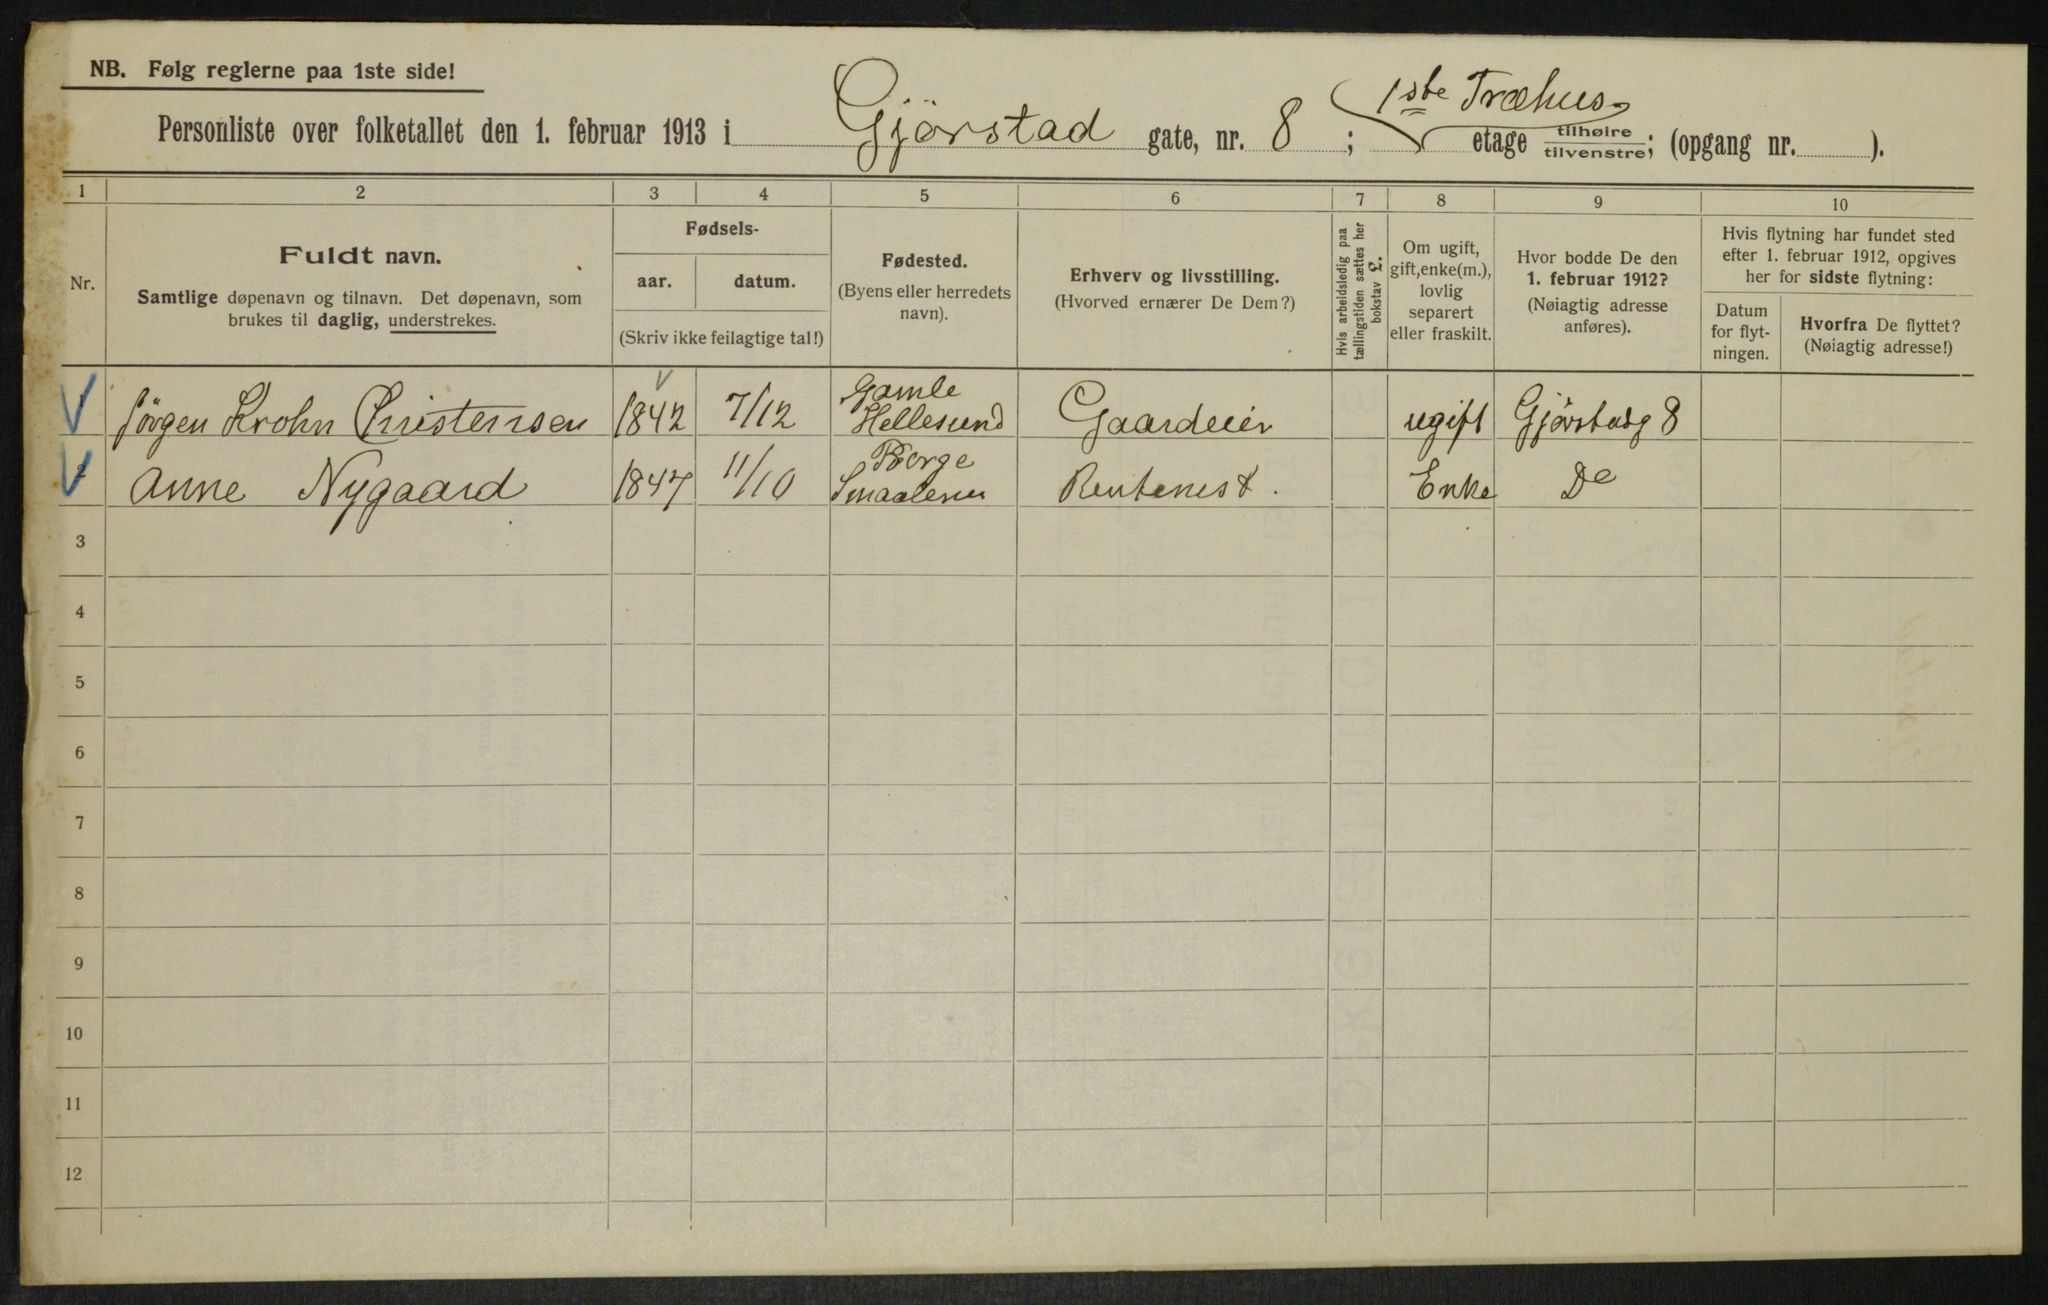 NB. Følg reglerne paa 1ste side!
Personliste over folketallet den 1. februar 1913 i Gjörstad gate, nr. 8 ; 1ste Træhus etage tilhøire tilvenstre; (opgang nr. ).
1 2 3 4 5 6 7 8 9 10
Nr.
Fuldt navn.
Samtlige døpenavn og tilnavn. Det døpenavn, som
brukes til daglig, understrekes.
Fødsels-
aar. datum.
(Skriv ikke feilagtige tal!)
Fødested.
(Byens eller herredets
navn).
Erhverv og livsstilling.
(Hvorved ernærer De Dem?)
Hvis arbeidsledig paa
tællingstiden sættes her
bokstav L.
Om ugift,
gift, enke(m.),
lovlig
separert
eller fraskilt.
Hvor bodde De den
1. februar 1912?
(Nøiagtig adresse
anføres).
Hvis flytning har fundet sted
efter 1. februar 1912, opgives
her for sidste flytning:
Datum
for flyt-
ningen.
Hvorfra De flyttet?
(Nøiagtig adresse!)
Jörgen Krohn Christensen 1842 7/12 Gamle Hellesund Gaardeier ugift Gjörstadg 8
Anne Nygaard 1847 11/10 Borge Smaalenen Rentenest. Enke Do
3
4
5
6
7
8
9
10
11
12